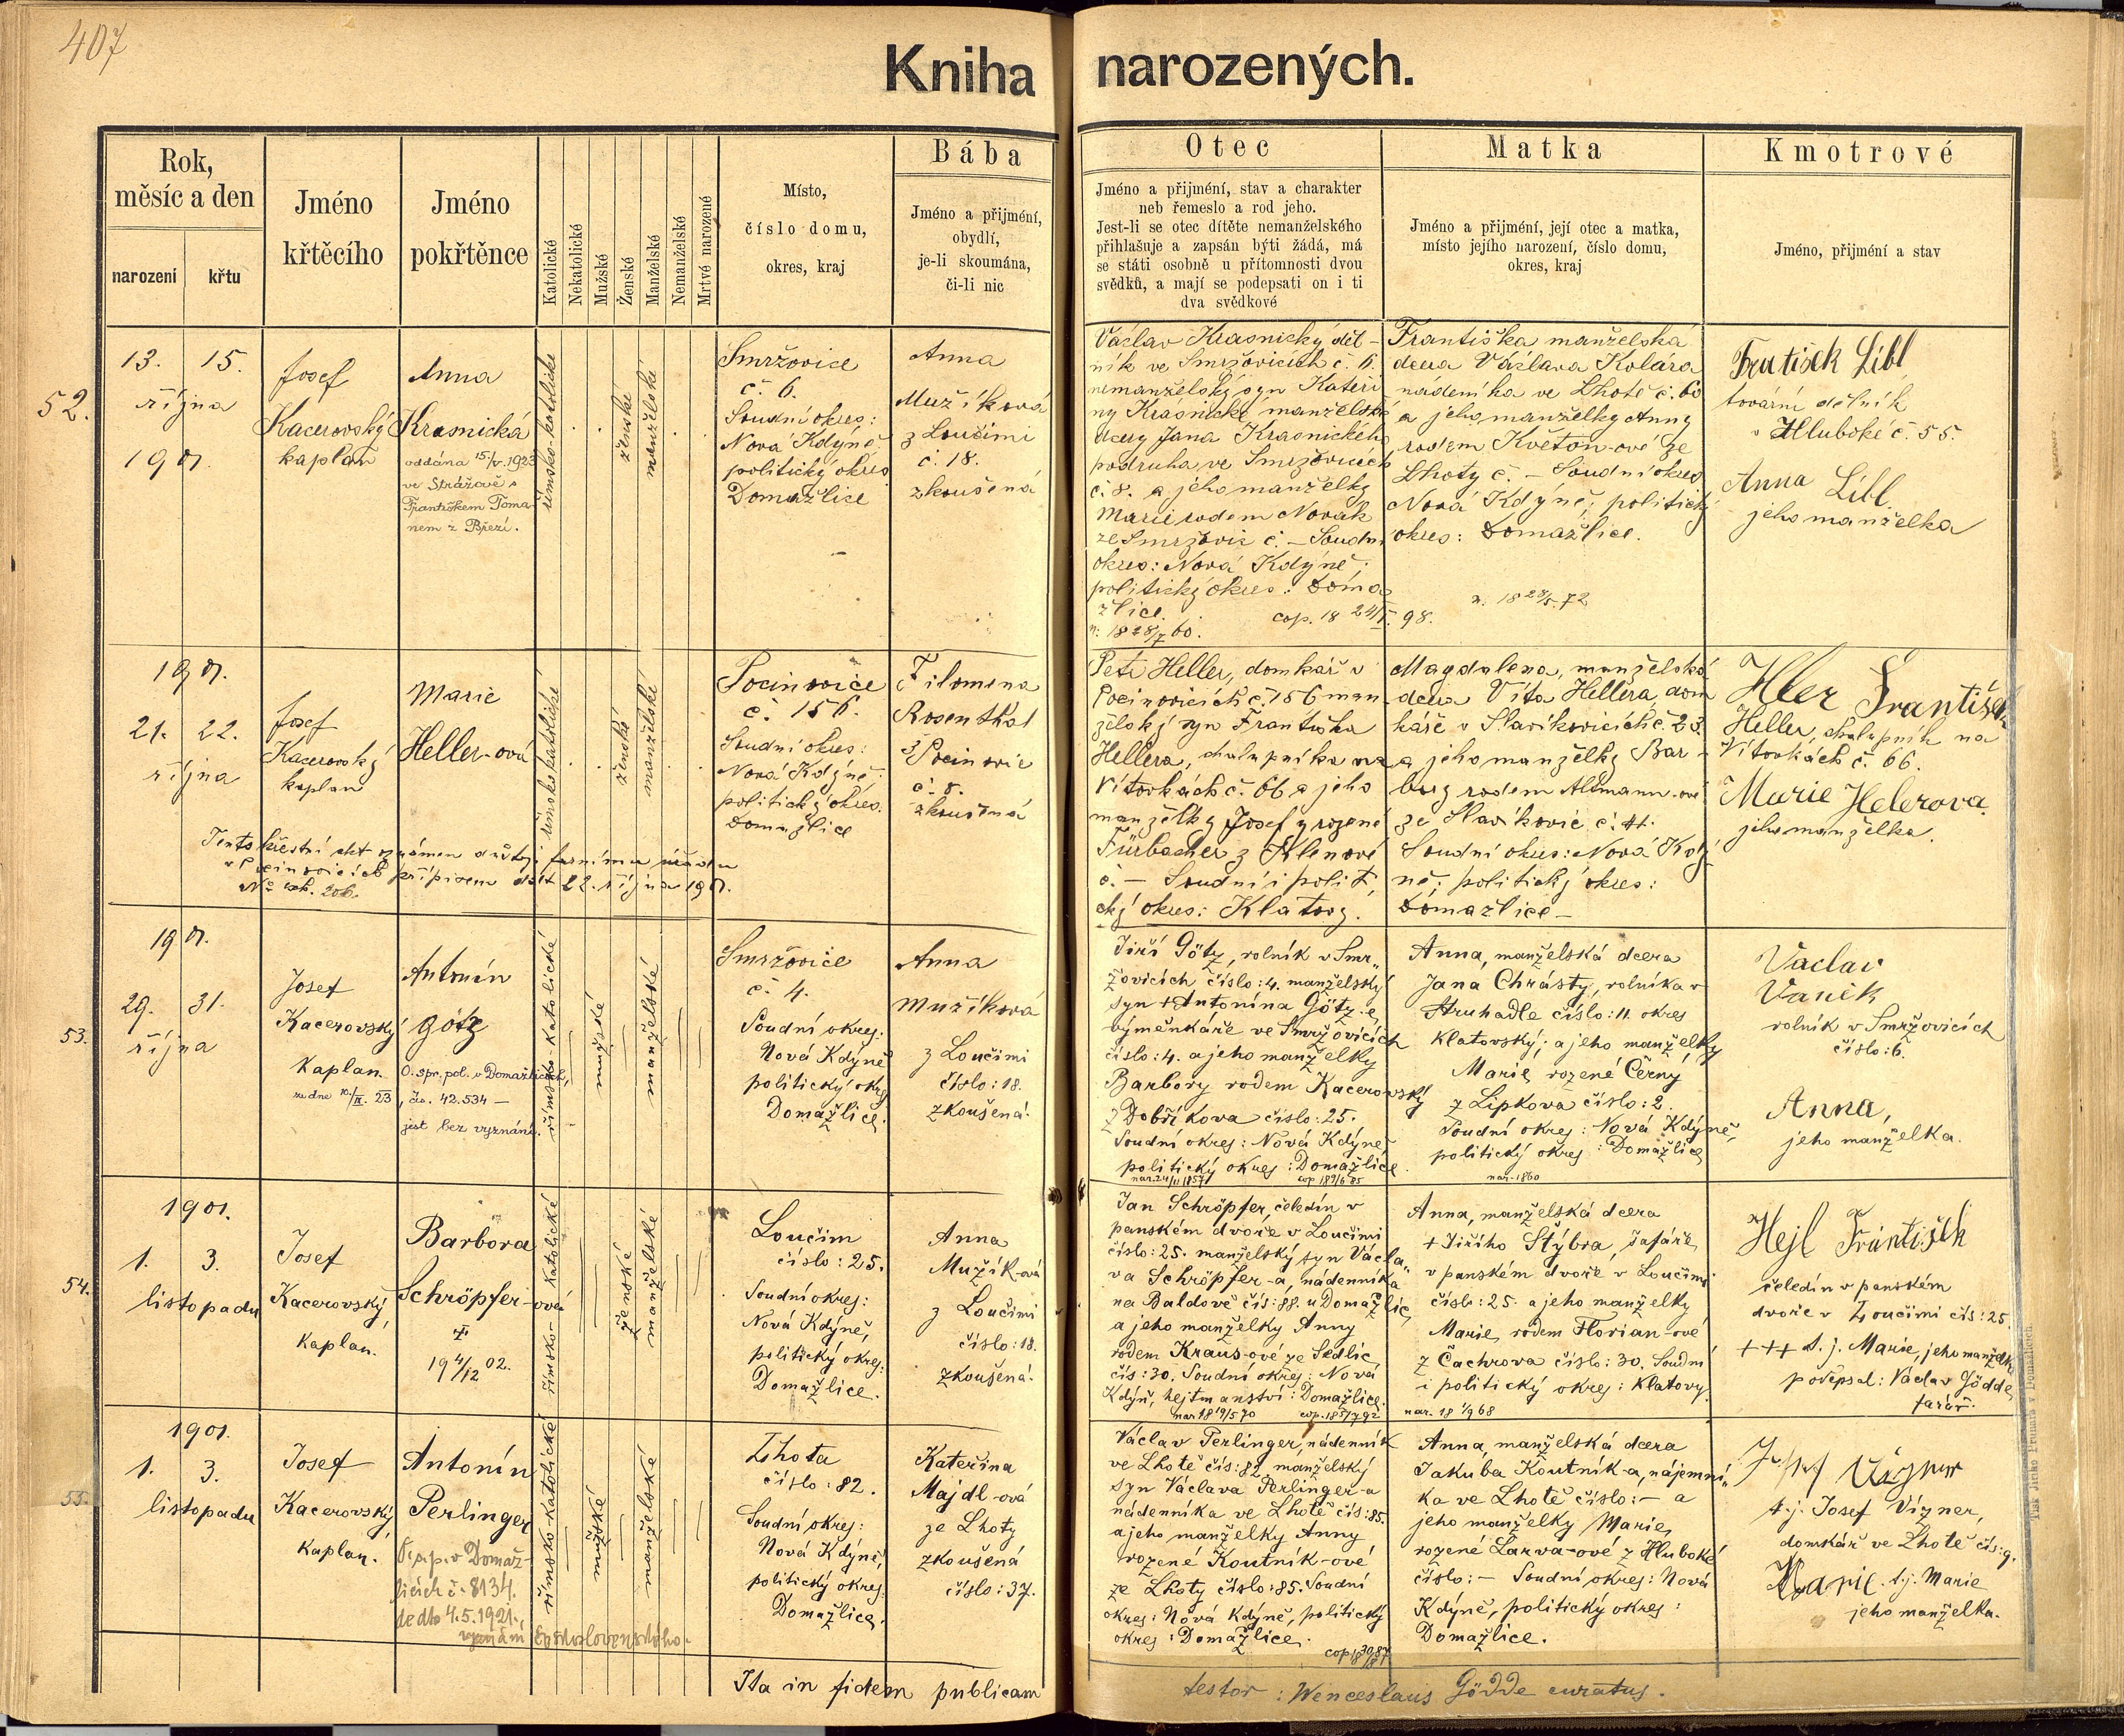 407
Kniha narozených.
Rok,
měsíc a den
narození
křtu
Jméno
křtěcího
Jméno
pokřtěnce
Katolické
Nekatolické
Mužské
Ženské
Manželské
Nemanželské
Mrtvě narozené
Místo,
číslo domu,
okres, kraj
Bába
Jméno a přijmení,
obydlí,
je-li skoumána,
či-li nic
Otec
Jméno a přijmení, stav a charakter
neb řemeslo a rod jeho.
Jest-li se otec dítěte nemanželského
přihlašuje a zapsán býti žádá, má
se státi osobně u přítomnosti dvou
svědků, a mají se podepsati on i ti
dva svědkové
Matka
Jméno a přijmení, její otec a matka,
místo jejího narození, číslo domu,
okres, kraj
Kmotrové
Jméno, přijmení a stav
52.
13. 15.
října
1901.
Josef
Kacerovský
kaplan
Anna
Krasnická
oddána 15/V. 1923
ve Strážově s
Františkem Toma-
nem z Březí.
římsko-katolické
ženské
manželské
Smržovice
č. 6.
Soudní okres:
Nová Kdýně
politický okres
Domažlice
Anna
Mužíková
z Loučimi
č. 18.
zkoušená
Václav Krasnický děl-
ník ve Smržovicích č. 6.
nemanželský syn Kateři
ny Krasnické manželské
dcery Jana Krasnického
podruha ve Smržovicích
č. 8. a jeho manželky
Marie rodem Novák
ze Smržovic č. – Soudní
okres: Nová Kdýně;
politický okres: Doma
žlice.
n. 18 28/7 60.
cop. 18 24/I. 98.
Františka manželská
dcera Václava Kolára
nádeníka ve Lhotě č. 60
a jeho manželky Anny
rodem Květoň-ové ze
Lhoty č. – Soudní okres
Nová Kdýně; politický
okres: Domažlice.
n. 18 28/5. 72
Frutišek Líbl
tovární dělník
v Hluboké č. 55.
Anna Líbl
jeho manželka
1901.
21. 22.
října
Josef
Kacerovský
kaplan
Marie
Heller-ová
římskokatolické
ženské
manželské
Pocinovice
č. 156.
Soudní okres:
Nová Kdýně
politický okres.
Domažlice
Filomena
Rosenthal
z Pocinovic
č. 8.
zkoušená
Tento křestní akt oznámen důstoj. farnímu úřadu
v Pocinovicích přípisem dtto 22. října 1901.
No exh. 206.
Petr Heller, domkář v
Pocinovicích č. 156 man
želský syn Františka
Hellera, chalupníka na
Vítovkách č. 66 a jeho
manželky Josefy rozené
Fürbacher z Klenové
č. – Soudní i polit.
cký okres: Klatovy.
Magdalena, manželská
dcera Víta Hellera, dom
káře v Slavíkovicích č. 23.
a jeho manželky Bar-
bury rodem Altmann-ové
ze Slavíkovic č. 11.
Soudní okres: Nová Kdý
ně; politický okres:
Domažlice –
Hller František
Heller, chalupník na
Vítovkách č. 66.
Marie Helerova
jeho manželka.
53.
1901.
29. 31.
října
Josef
Kacerovský
kaplan.
Antonín
Götz
O. spr. pol. v Domažlicích,
ze dne 10./II. 23, čís. 42.534 –
jest bez vyznání.
římsko-katolické
mužské
manželské
Smržovice
č. 4.
Soudní okres:
Nová Kdýně
politický okres
Domažlice.
Anna
Mužíková
z Loučimi
číslo: 18.
zkoušená.
Jiří Götz, rolník v Smr-
žovicích číslo: 4. manželský
syn + Antonína Götz-e,
výměnkáře ve Smržovicích
číslo: 4. a jeho manželky
Barbory rodem Kacerovský
z Dobříkova číslo: 25.
Soudní okres: Nová Kdýně,
politický okres: Domažlice.
nar. 24/11 1857
cop 189/6 85
Anna, manželská dcera
Jana Chrásty, rolníka v
Struhadle číslo: 11. okres
Klatovský; a jeho manželky
Marie, rozené Černý
z Lipkova číslo: 2.
Soudní okres: Nová Kdýně,
politický okres: Domažlice
nar. 1860
Vaclav
Vaněk
rolník v Smržovicích
číslo: 6.
Anna,
jeho manželka.
54.
1901.
1. 3.
listopadu
Josef
Kacerovský,
kaplan.
Barbora
Schröpfer-ová
19 4/12 02.
římsko-katolické
ženské
manželské
Loučim
číslo: 25.
Soudní okres:
Nová Kdýně,
politický okres:
Domažlice.
Anna
Mužík-ová
z Loučimi
číslo: 18.
zkoušená.
Jan Schröpfer, čeledín v
panském dvoře v Loučimi
číslo: 25. manželský syn Václa-
va Schröpfer-a, nádenníka
na Baldově čís: 88. u Domažlic,
a jeho manželky Anny
rodem Kraus-ové ze Sedlic
čís: 30. Soudní okres: Nová
Kdýň, hejtmanství: Domažlice.
nar 18 19/5 70
cop. 185/7 92
Anna, manželská dcera
+ Jiřího Štýbra, šafáře
v panském dvoře v Loučimi
číslo: 25. a jeho manželky
Marie, rodem Florian-ové
z Čachrova číslo: 30. Soudní
i politický okres: Klatovy.
nar. 18 1/9 68
Hejl František
čeledín v panském
dvoře v Loučimi čís: 25.
+++ t. j. Marie, jeho manželka
podepsal: Václav Gödde,
farář.
55.
1901.
1. 3.
listopadu
Josef
Kacerovský,
kaplan.
Antonín
Perlinger
O. s. p. v Domaž-
licích č. 8134.
de dto 4.5.1921.,
vyznání československého.
římsko-katolické
mužské
manželské
Lhota
číslo: 82.
Soudní okres:
Nová Kdýně,
politický okres:
Domažlice.
Kateřina
Majdl-ová
ze Lhoty
zkoušená
číslo: 37.
Václav Perlinger, nádenník
ve Lhotě čís: 82. manželský
syn Václava Perlinger-a
nádenníka ve Lhotě čís: 85.
a jeho manželky Anny
rozené Koutník-ové
ze Lhoty číslo: 85. Soudní
okres: Nová Kdýně, politický
okres: Domažlice.
Anna, manželská dcera
Jakuba Koutník-a, nájemní-
ka ve Lhotě číslo: – a
jeho manželky Marie,
rozené Larva-ové z Hluboké
číslo: – Soudní okres: Nová
Kdýně, politický okres:
Domažlice.
t. j. Josef Vízner,
domkář ve Lhotě čís: 9.
Marie. t. j. Marie
jeho manželka.
Ita in fidem publicam
testor: Wenceslaus Gödde curatus.
Tisk Jiřího Prunara v Domažlicích.